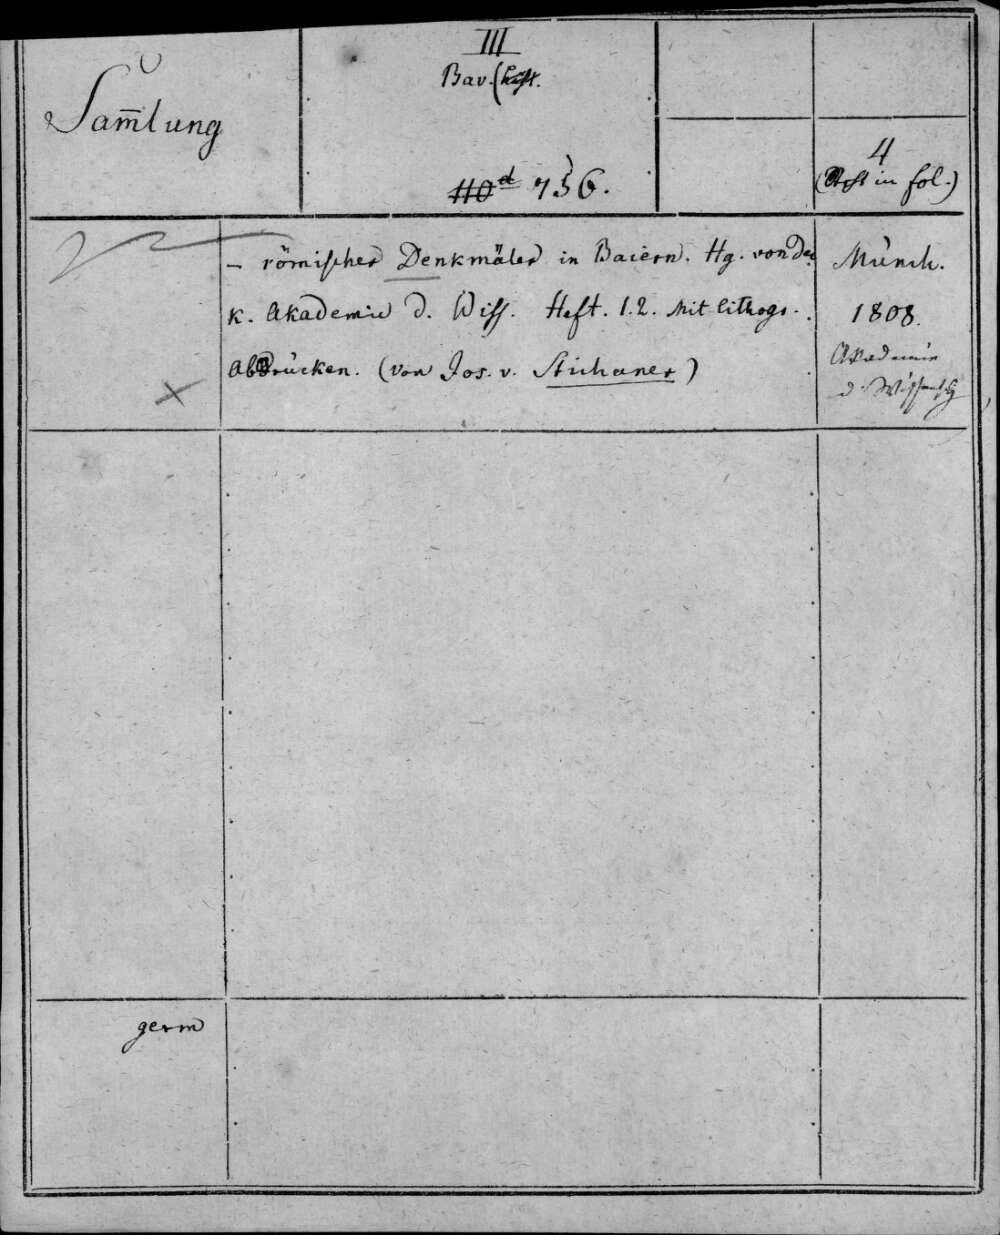 Sam̄lung
III
Bav.
110d 756.
4
in fol.)
– römischer Denkmäler in Baiern. Hg. von der
k. Akademie d. Wiss. Heft. 1.2. Mit lithogr.
Abdrücken. (von Jos. v. Stichaner)
Münch.
1808.
Akademie
d. Wissensch
germ